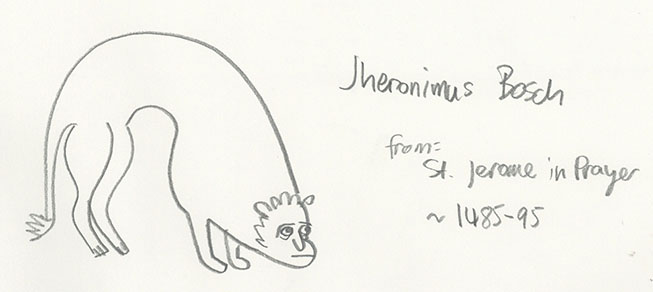 Jheronimus Bosch
from:
St. Jerome in Prayer
~ 1485-95